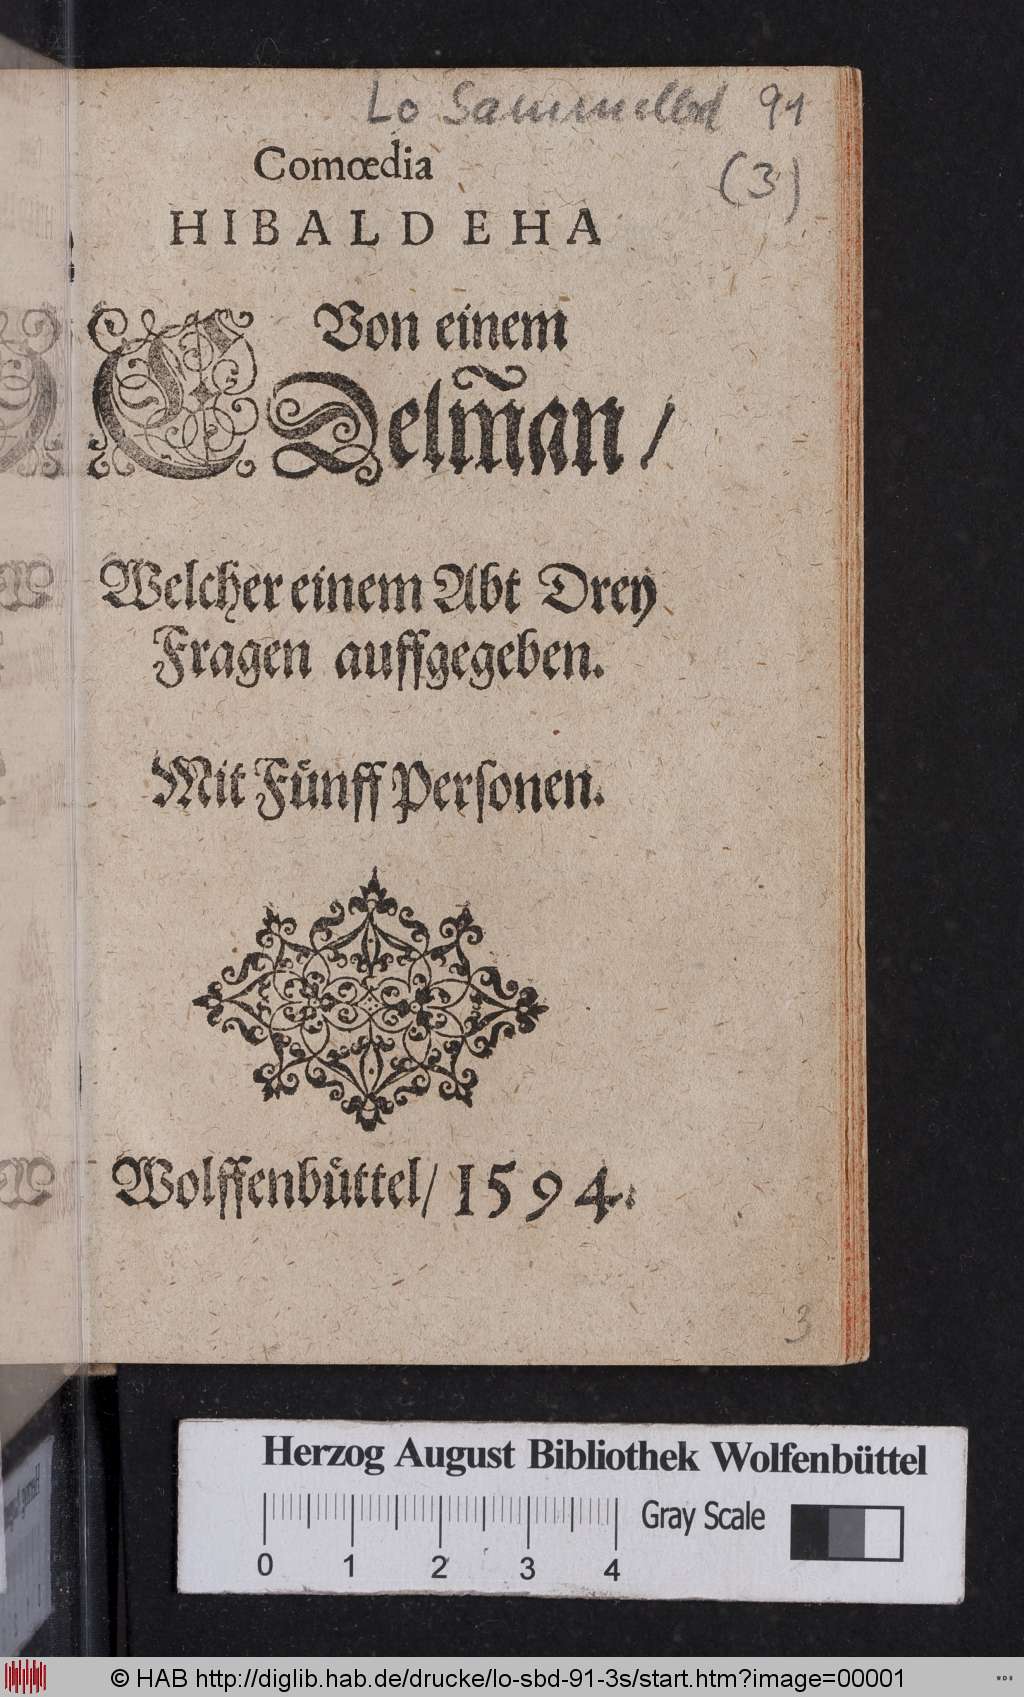 Lo Sammelbd 91
(3)
Comœdia
HIBALDEHA
Von einem
EDelm̃an /
Welcher einem Abt Drey
Fragen auffgegeben.
Mit Fünff Personen.
Wolffenbüttel / 1594.
3
Herzog August Bibliothek Wolfenbüttel
Gray Scale
0 1 2 3 4
© HAB http://diglib.hab.de/drucke/lo-sbd-91-3s/start.htm?image=00001